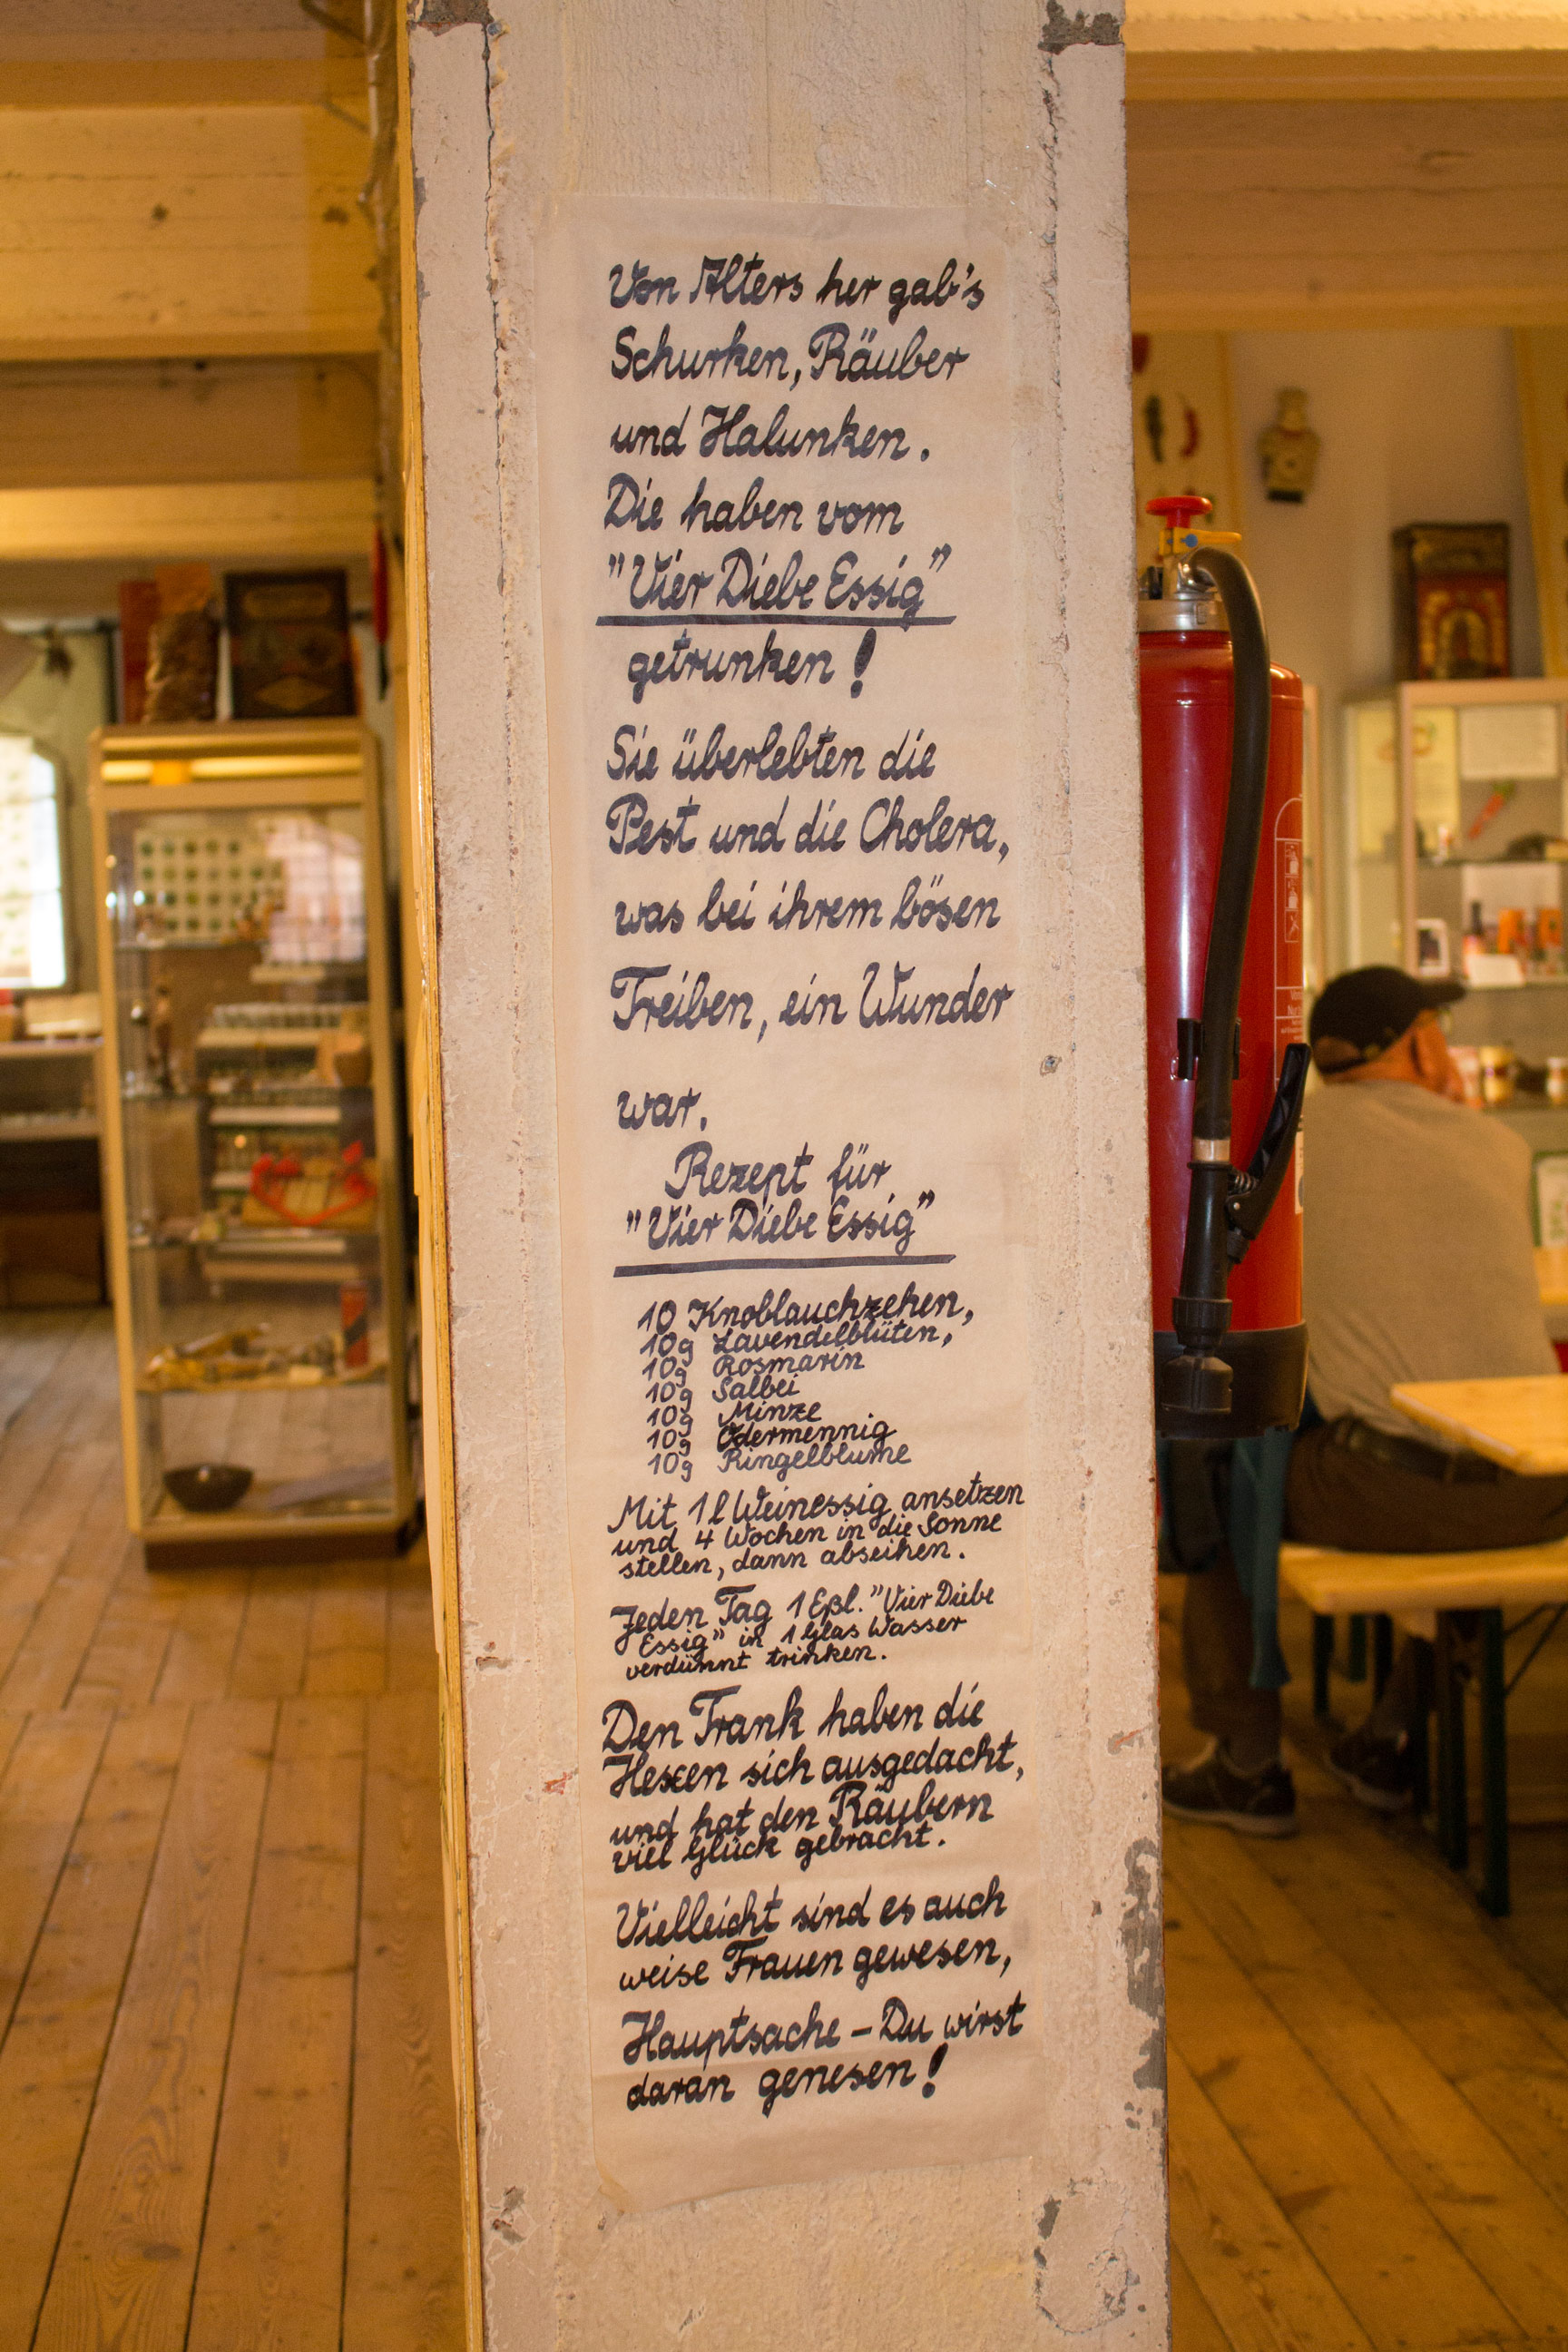 Von Alters her gab's
Schurken, Räuber
und Halunken.
Die haben vom
"Vier Diebe Essig"
getrunken!
Sie überlebten die
Pest und die Cholera,
was bei ihrem bösen
Treiben, ein Wunder
war.
Rezept für
"Vier Diebe Essig"
10 Knoblauchzehen,
10g Lavendelblüten,
10g Rosmarin
10g Salbei
10g Minze
10g Odermennig
10g Ringelblume
Mit 1l Weinessig ansetzen
und 4 Wochen in die Sonne
stellen, dann abseihen.
Jeden Tag 1 Eßl. "Vier Diebe
Essig" in 1 Glas Wasser
verdünnt trinken.
Den Trank haben die
Hexen sich ausgedacht,
und hat den Räubern
viel Glück gebracht.
Vielleicht sind es auch
weise Frauen gewesen,
Hauptsache – Du wirst
daran genesen!